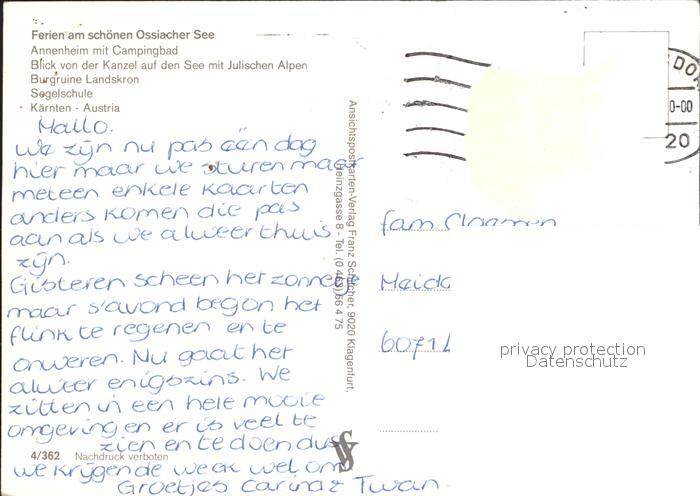 Ferien am schönen Ossiacher See
Annenheim mit Campingbad
Blick von der Kanzel auf den See mit Julischen Alpen
Burgruine Landskron
Segelschule
Kärnten - Austria
Hallo.
We zijn nu pas één dag
hier maar we sturen maar
meteen enkele kaarten
anders komen die pas
aan als we alweer thuis
zijn.
Gisteren scheen het zonnetje
maar s'avond begon het
flink te regenen en te
onweren. Nu gaat het
alweer enigszins. We
zitten in een hele mooie
omgeving en er is veel te
zien en te doen dus
we krijgen de week wel om
Groetjes Carina & Twan.
4/362 Nachdruck verboten
Ansichtspostkarten-Verlag Franz Schilcher, 9020 Klagenfurt,
Heinzgasse 8 - Tel. (0 42 66 4 75
DO
0-00
20
fam.
Meida
6071L
privacy protection
Datenschutz